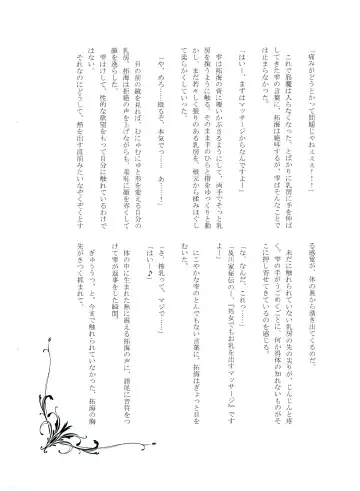 「痛みがどうとかって問題じゃねぇぇぇ！！」
これで邪魔は入らなくなった、とばかりに乳房に手を伸ば
してきた雫の言葉に、拓海は絶叫するが、雫はそんなことで
「はいー、まずはマッサージからなんですよー」
雫は拓海の背に覆いかぶさるようにして、両手でそっと乳
房を掬うように触る。そのまま手のひらと指をゆっくりと動
かし、まだ若々しく張りのある乳房を、根元から揉みほぐし
て柔らかくしていった。
「や、めろ……殴るぞ、本気でっ……あ……！」
目の前の鏡を見れば、むにゅむにゅと形を変える自分の
乳房。拓海は拒絶の声を上げながらも、羞恥に顔を赤くして
顔を逸らした。
雫はけして、性的な欲望をもって自分に触れているわけで
はない。
それなのにどうして、熱を出す直前みたいなぞくぞくとす
る感覚が、体の奥から湧き出てくるのだ。
未だに触れられていない乳房の先の尖りが、じんじんと疼
く。雫の手がうごめくごとに、何か得体の知れないものがそ
こに押し寄せてきているのを感じる。
「な、なんだ、これっ……」
「及川家秘伝のー、『処女でもお乳を出すマッサージ』です
よー」
にこやかな雫のとんでもない言葉に、拓海はぎょっと目を
むいた。
「さ、搾乳って、マジで……」
「はい～♪」
体の中に生まれた熱に震える拓海の声に、語尾に音符をつ
けて雫が返事をした瞬間。
ぎゅううっ、と、今まで触れられていなかった、拓海の胸
先がきつく掴まれて、